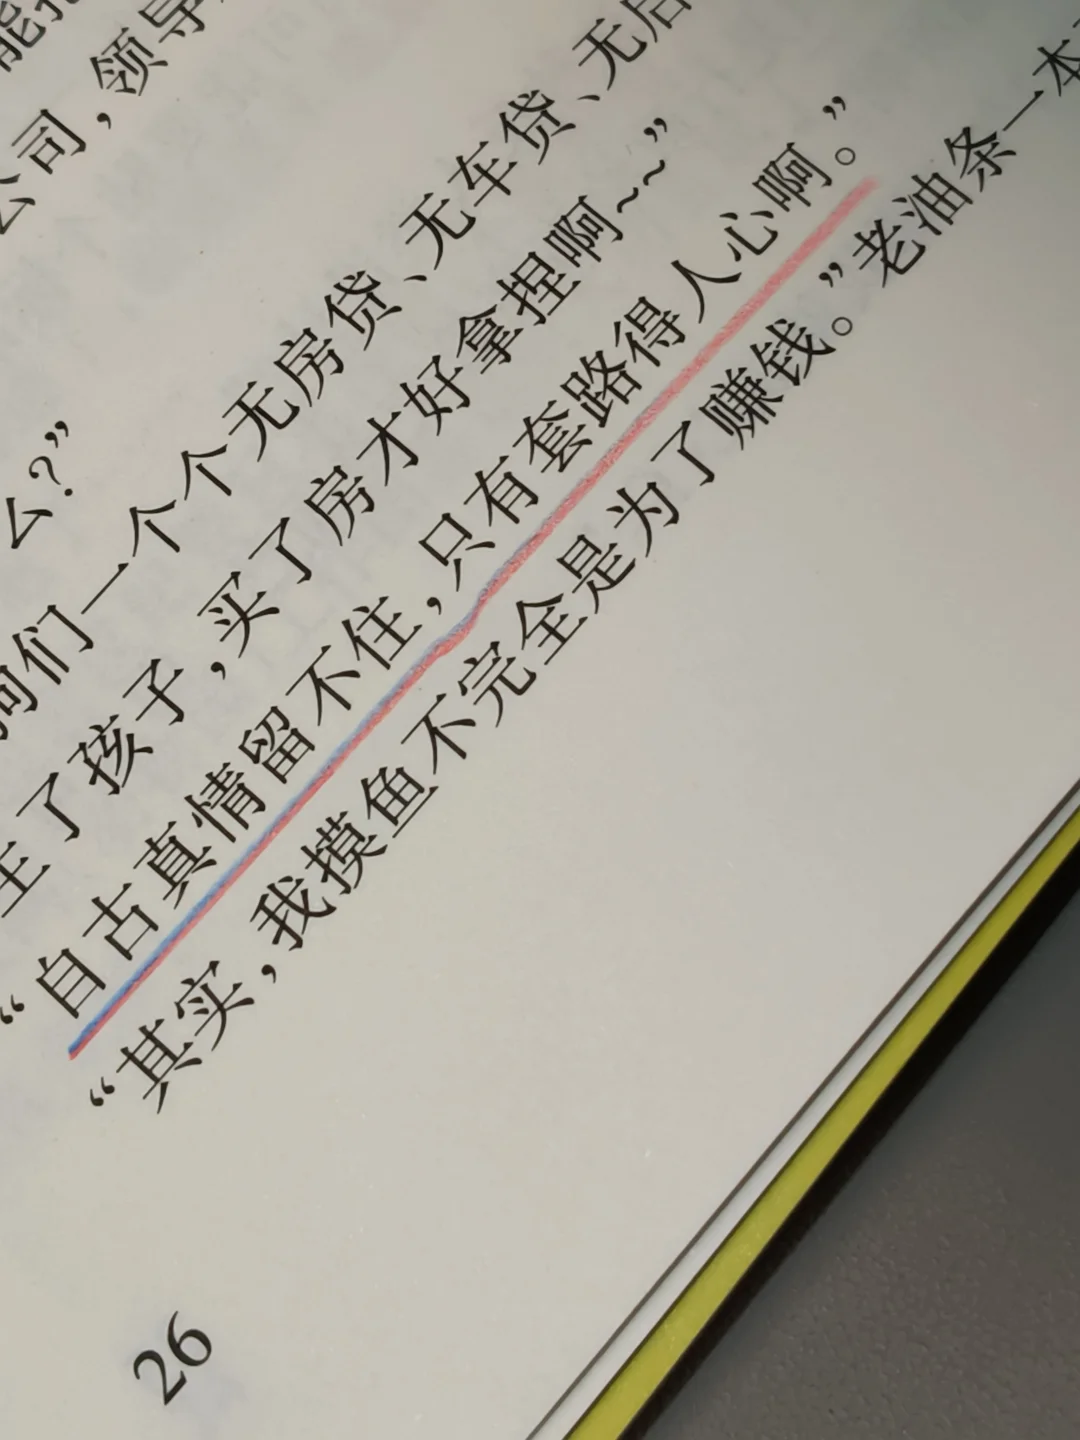 公司，领导
么？”
们一个个无房贷、无车贷、无后
了孩子，买了房才好拿捏啊~~”
“自古真情留不住，只有套路得人心啊。”
“其实，我摸鱼不完全是为了赚钱。”老油条一本
26